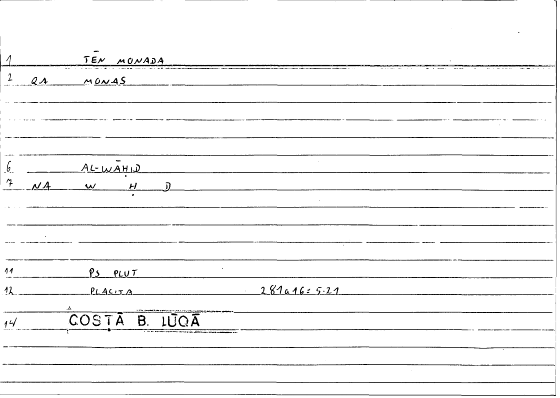 1 TĒN MONADA
2 QA MONAS
6 AL-WĀḤID
7 NA W Ḥ D
11 PS PLUT
12 PLACITA 281a16 = 5.21
14 COSṬĀ B. LŪQĀ